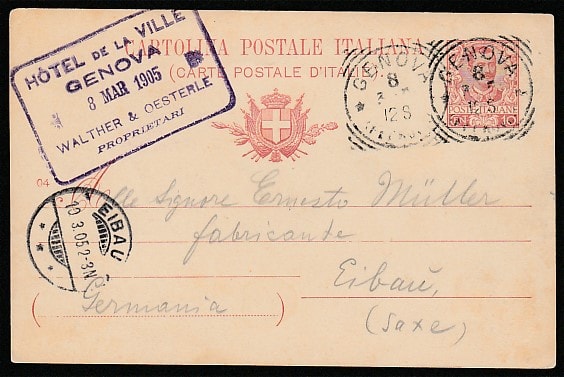 HÔTEL DE LA VILLE
GENOVA
8 MAR 1905
WALTHER & OESTERLE
PROPRIETARI
CARTOLINA POSTALE ITALIANA
(CARTE POSTALE D'ITALIE)
GENOVA
8
12 S
GENOVA
8
12 S
POSTE ITALIANE
10
04
Alle Signore Ernesto Müller
fabricante
Eibau,
Germania
(Saxe)
EIBAU
10.3.05.2-3N